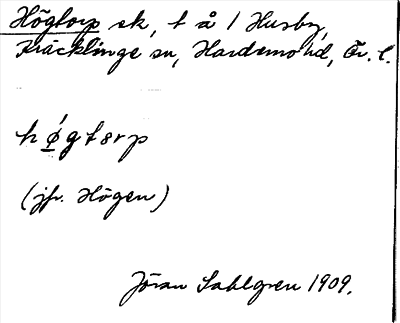 Högtorp ek, t å 1 Husby,
Kräcklinge sn, Hardemo hd, Ör. l.
hǿgtorp
(jfr. Högen)
Jöran Sahlgren 1909.